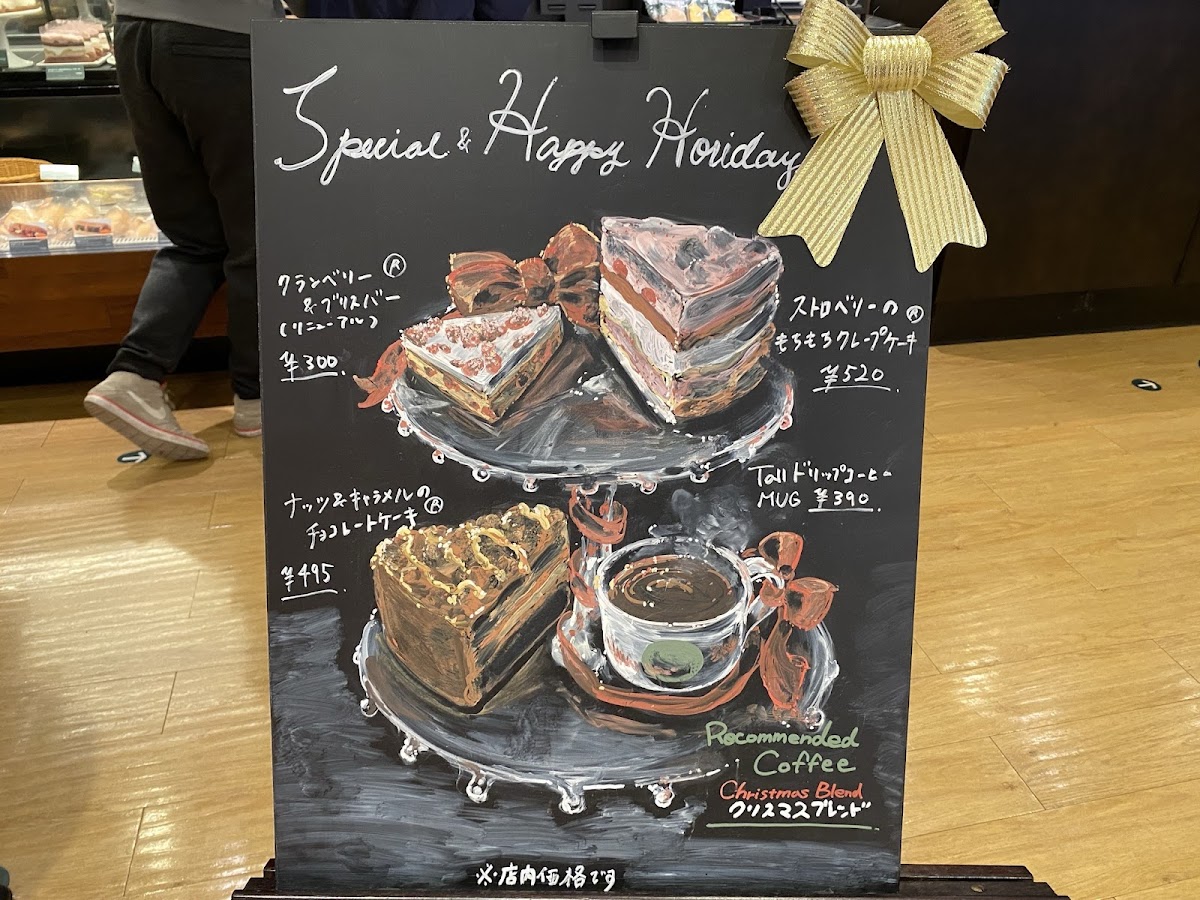 Special & Happy Horiday
クランベリー Ⓡ
&ブリスバー
(リニューアル)
¥300.
ストロベリーの Ⓡ
もちもちクレープケーキ
¥520.
ナッツ&キャラメルの
チョコレートケーキ Ⓡ
¥495.
Tall ドリップコーヒー
MUG ¥390.
Recommended
Coffee
Christmas Blend
クリスマスブレンド
※店内価格です